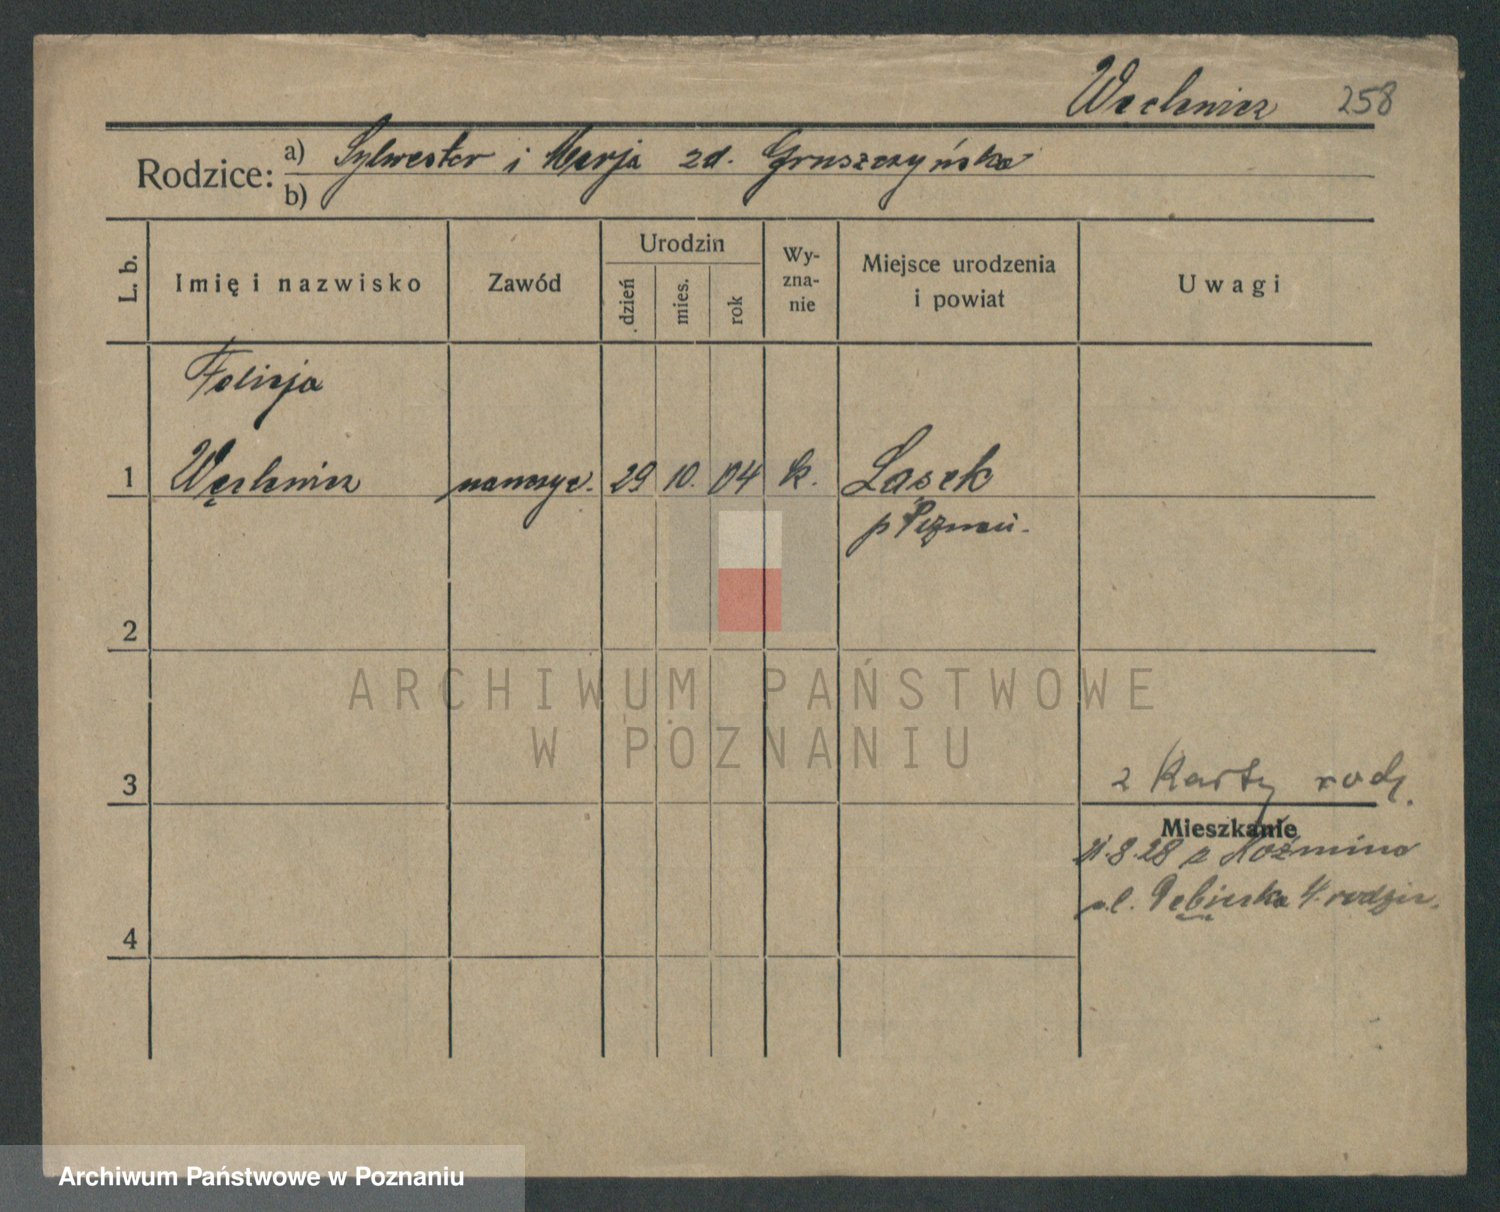 Węclewicz 258
Rodzice: a) Sylwester i Marja zd. Gruszczyńska
b)
L. b.
Imię i nazwisko
Zawód
Urodzin
dzień
mies.
rok
Wy-
zna-
nie
Miejsce urodzenia
i powiat
Uwagi
Felicja
1 Węclewicz nauczyc. 29 10. 04 k. Lasek
p Poznań.
2
ARCHIWUM PAŃSTWOWE
W POZNANIU
3
z Karty rodz.
Mieszkanie
8.28 z Koźmina
ul. Dębieńska 4. rodzic.
4
Archiwum Państwowe w Poznaniu